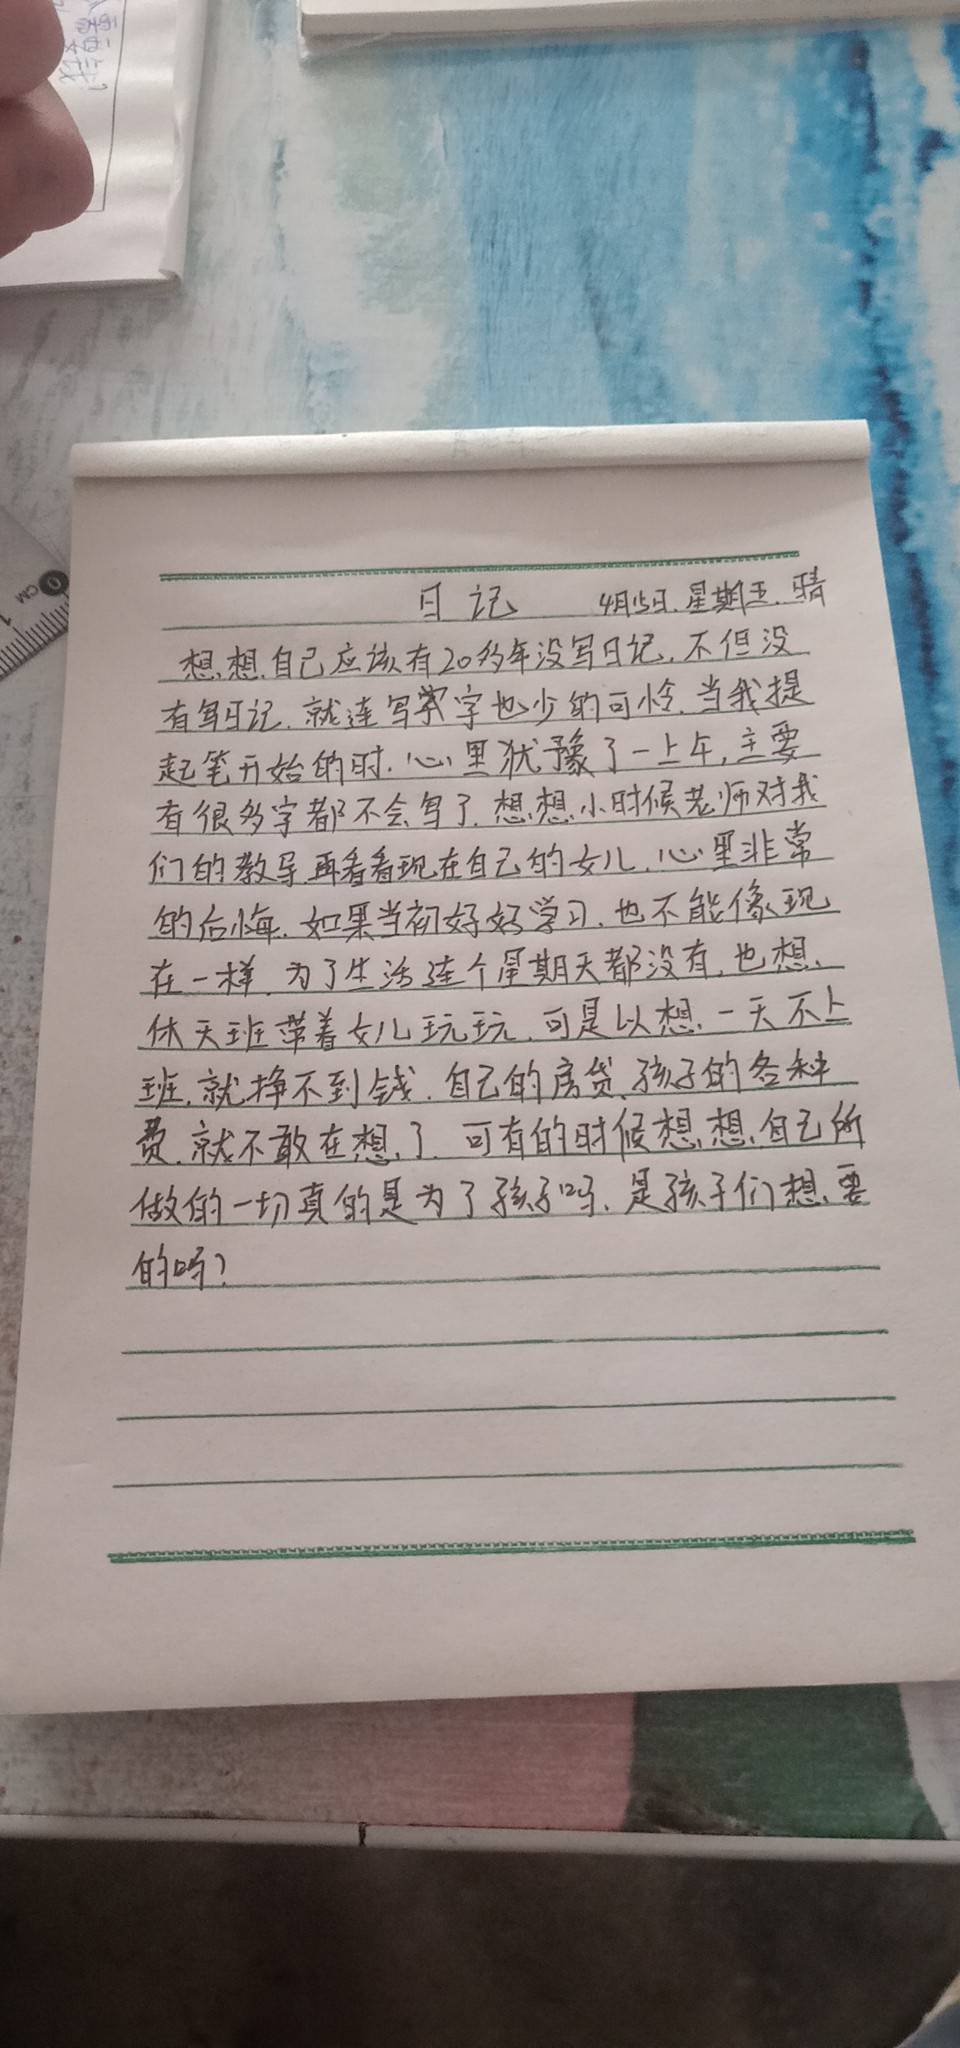 日记 4月15日.星期五.晴
想想自己应该有20多年没写日记,不但没
有写日记.就连写字也少的可怜.当我提
起笔开始的时.心里犹豫了一上午,主要
有很多字都不会写了.想想小时候老师对我
们的教导再看看现在自己的女儿.心里非常
的后悔.如果当初好好学习.也不能像现
在一样.为了生活连个星期天都没有,也想
休天班带着女儿玩玩.可是以想.一天不上
班.就挣不到钱.自己的房贷.孩子的各种
费.就不敢在想了.可有的时候想想自己所
做的一切真的是为了孩子吗.是孩子们想要
的吗?
0
CM
1
需
钱